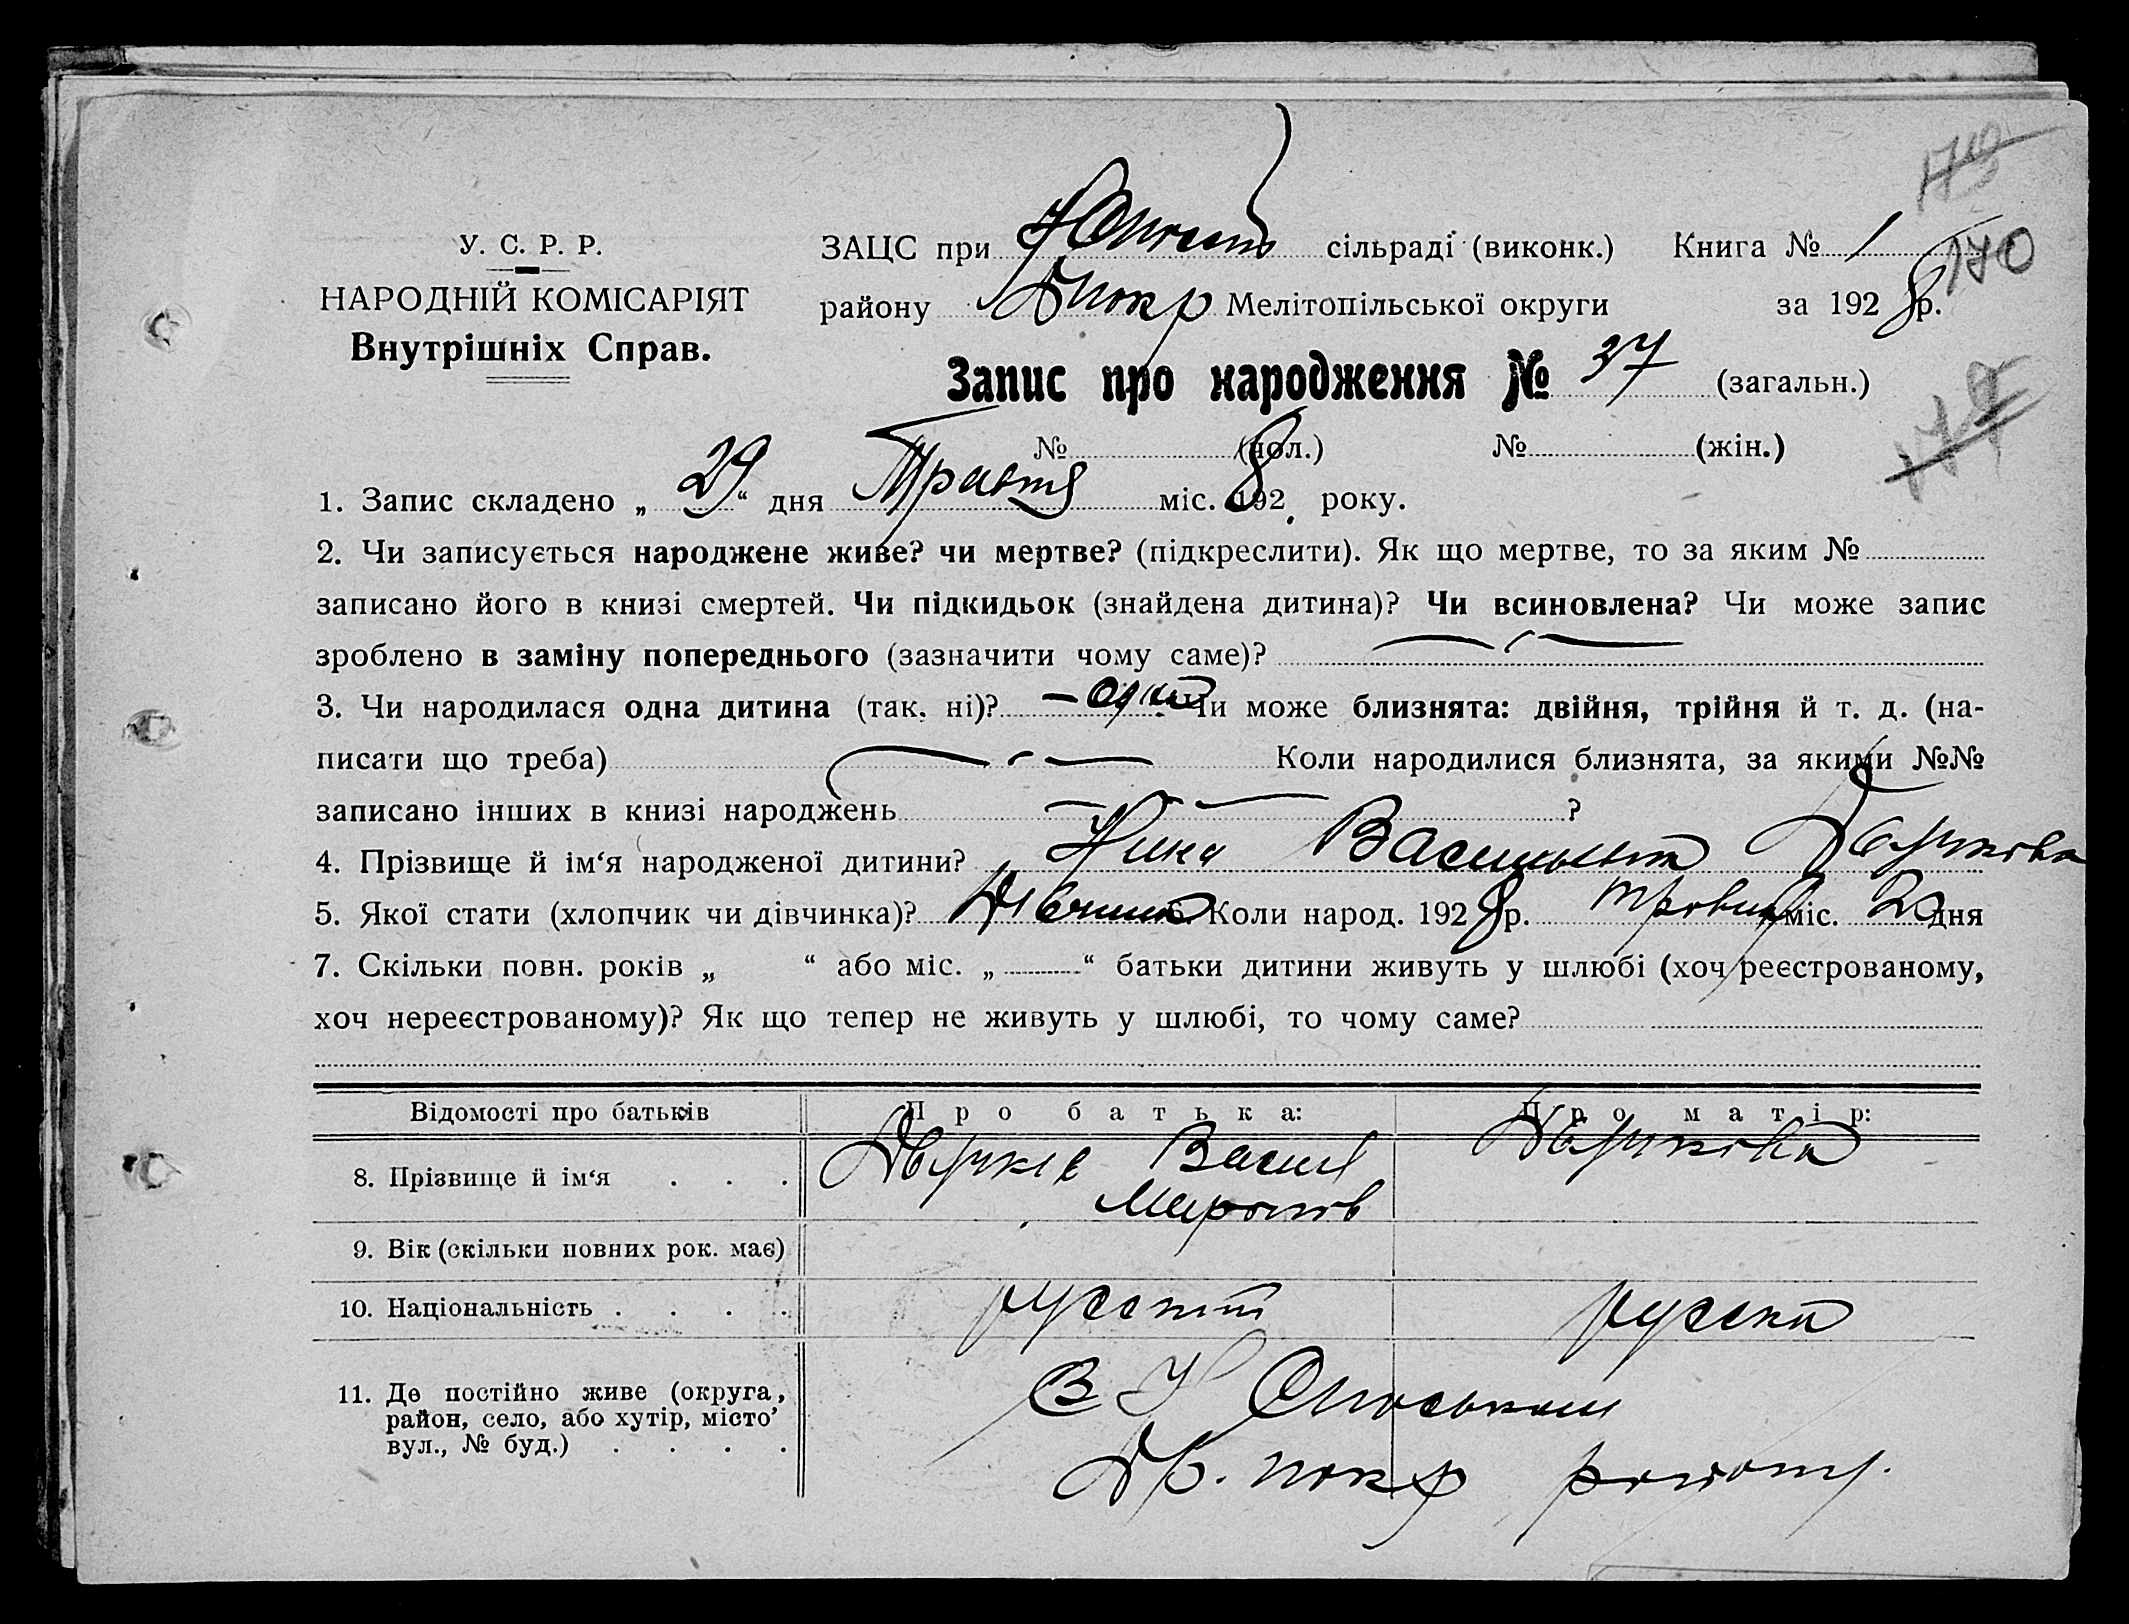 170
У. С. Р. Р.
НАРОДНІЙ КОМІСАРІЯТ
Внутрішніх Справ.
ЗАЦС при сільраді (виконк.) Книга № 1
району Мелітопільської округи за 1928 р.
Запис про народження № 37 (загальн.)
№ (чол.) № (жін.)
1. Запис складено „ 29 “ дня Травня міс. 1928 року.
2. Чи записується народжене живе? чи мертве? (підкреслити). Як що мертве, то за яким №
записано його в книзі смертей. Чи підкидьок (знайдена дитина)? Чи всиновлена? Чи може запис
зроблено в заміну попереднього (зазначити чому саме)?
3. Чи народилася одна дитина (так, ні)? Чи може близнята: двійня, трійня й т. д. (на-
писати що треба) Коли народилися близнята, за якими №№
записано інших в книзі народжень ?
4. Прізвище й ім‘я народженої дитини? Нина
5. Якої стати (хлопчик чи дівчинка)? Дівчинка 6. Коли народ. 1928 р. травня міс. дня
7. Скільки повн. років „ “ або міс. „ “ батьки дитини живуть у шлюбі (хоч реєстрованому,
хоч нереєстрованому)? Як що тепер не живуть у шлюбі, то чому саме?
Відомості про батьків Про батька: Про матір:
8. Прізвище й ім‘я . . . Васил
9. Вік (скільки повних рок. має)
10. Національність . . . . русский русска
11. Де постійно живе (округа,
район, село, або хутір, місто
вул., № буд.) . . . .